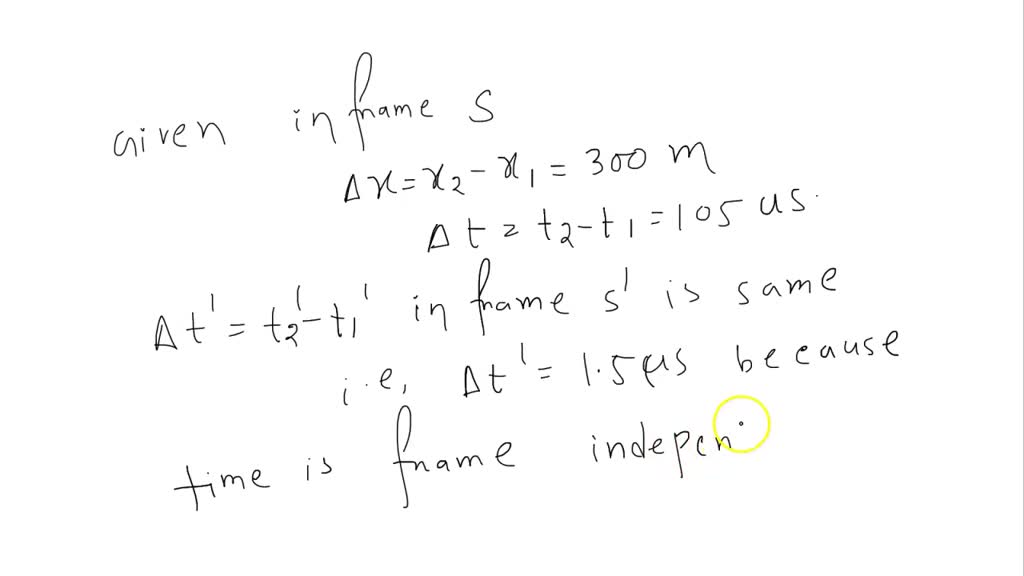 Given in frame S
Δx = x₂ - x₁ = 300 m
Δt = t₂ - t₁ = 105 us.
Δt' = t₂' - t₁' in frame s' is same
i.e, Δt' = 1.5 μs because
time is frame indepen